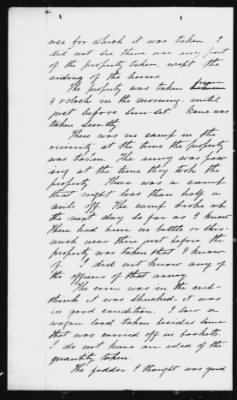 use for which it was taken. I
did not see them use any part
of the property taken except the
riding of the horses.
The property was taken from
9 oclock in the morning until
just before sun-set. None was
taken secretly
There was no camp in the
vicinity at the time the property
was taken. The army was pass
ing at the time they took the
property. There was a camp
that night less than half a
mile off. The camp broke up
the next day so far as I know
There had been no battle or skir-
mish near there just before the
property was taken that I know
of. I did not know any of
the officers of that army.
The corn was in the
think it was shucked. it was
in good condition. I saw a
wagon load taken besides some
that was carried off in baskets.
I do not have an idea of the
quantity taken.
The fodder I thought was good